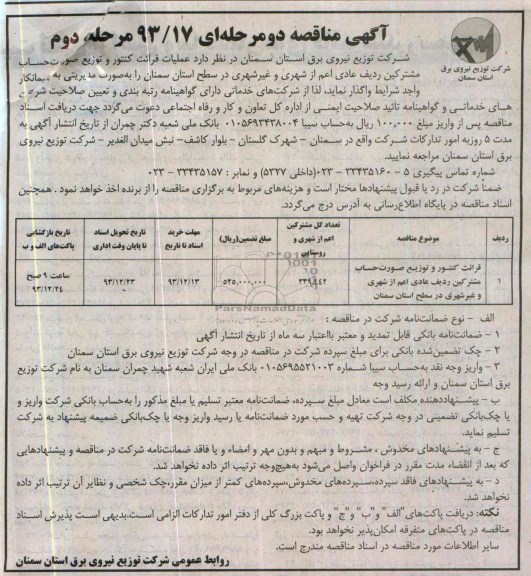 آگهی مناقصه دومرحله‌ای ۹۳/۱۷ مرحله دوم
شرکت توزیع نیروی برق
استان سمنان
شرکت توزیع نیروی برق استان سمنان در نظر دارد عملیات قرائت کنتور و توزیع صورت‌حساب
مشترکین ردیف عادی اعم از شهری و غیرشهری در سطح استان سمنان را به‌صورت مدیریتی به پیمانکار
واجد شرایط واگذار نماید، لذا از شرکت‌های خدماتی دارای گواهینامه رتبه بندی و تعیین صلاحیت شرکت
های خدماتی و گواهینامه تائید صلاحیت ایمنی از اداره کل تعاون و کار و رفاه اجتماعی دعوت می‌گردد جهت دریافت اسناد
مناقصه پس از واریز مبلغ ۱۰۰,۰۰۰ ریال به‌حساب سیبا ۰۱۰۵۶۹۳۴۳۸۰۰۴ بانک ملی شعبه دکتر چمران از تاریخ انتشار آگهی به
مدت ۵ روزبه امور تدارکات شرکت واقع در سمنان - شهرک گلستان - بلوار کاشف- نبش میدان الغدیر - شرکت توزیع نیروی
برق استان سمنان مراجعه نمایید.
شماره تماس پیگیری ۵ - ۳۳۴۳۵۱۶۰ -۰۲۳(داخلی ۵۳۲۷) و نمابر : ۳۳۴۳۵۱۵۷ - ۰۲۳
ضمناً شرکت در رد یا قبول پیشنهادها مختار است و هزینه‌های مربوط به برگزاری مناقصه را از برنده اخذ خواهد نمود . همچنین
اسناد مناقصه در پایگاه اطلاع‌رسانی به آدرس درج می‌گردد.
ردیف | موضوع مناقصه | تعداد کل مشترکین اعم از شهری و روستایی | مبلغ تضمین(ریال) | مهلت خرید اسناد تا تاریخ | تاریخ تحویل اسناد تا پایان وقت اداری | تاریخ بازگشایی پاکت‌های الف و ب
۱ | قرائت کنتور و توزیع صورت‌حساب مشترکین ردیف عادی اعم از شهری و غیرشهری در سطح استان سمنان | ۳۳۹,۴۴۲ | ۵۲۵,۰۰۰,۰۰۰ | ۹۳/۱۲/۱۳ | ۹۳/۱۲/۲۳ | ساعت ۹ صبح ۹۳/۱۲/۲۴
ParsNamadData
الف - نوع ضمانت‌نامه شرکت در مناقصه :
۱ - ضمانت‌نامه بانکی قابل تمدید و معتبر بااعتبار سه ماه از تاریخ انتشار آگهی
۲ - چک تضمین‌شده بانکی برای مبلغ سپرده شرکت در مناقصه در وجه شرکت توزیع نیروی برق استان سمنان
۳ - واریز وجه نقد به‌حساب سیبا شماره ۰۱۰۵۶۹۵۵۲۱۰۰۳ بانک ملی ایران شعبه شهید چمران سمنان به نام شرکت توزیع
برق استان سمنان و ارائه رسید وجه
ب - پیشنهاددهنده مکلف است معادل مبلغ سپرده، ضمانت‌نامه معتبر تسلیم یا مبلغ مذکور را به‌حساب بانکی شرکت واریز و
یا چک‌بانکی تضمینی در وجه شرکت تهیه و حسب مورد ضمانت‌نامه یا رسید واریز وجه یا چک‌بانکی ضمیمه پیشنهاد به شرکت
تسلیم نماید.
ج - به پیشنهادهای مخدوش ، مشروط و مبهم و بدون مهر و امضاء و یا فاقد ضمانت‌نامه شرکت در مناقصه و پیشنهادهایی
که بعد از انقضاء مدت مقرر در فراخوان واصل می‌شود به‌هیچ‌وجه ترتیب اثر داده نخواهد شد.
د - به پیشنهادهای فاقد سپرده،سپرده‌های مخدوش،سپرده‌های کمتر از میزان مقرر،چک شخصی و نظایر آن ترتیب اثر داده
نخواهد شد.
نکته: دریافت پاکت‌های"الف" و"ب" و"ج" و پاکت بزرگ کلی از دفتر امور تدارکات الزامی است.بدیهی است پذیرش اسناد
مناقصه در پاکت‌های متفرقه امکان‌پذیر نخواهد بود.
سایر اطلاعات مورد مناقصه در اسناد مناقصه مندرج است.
روابط عمومی شرکت توزیع نیروی برق استان سمنان